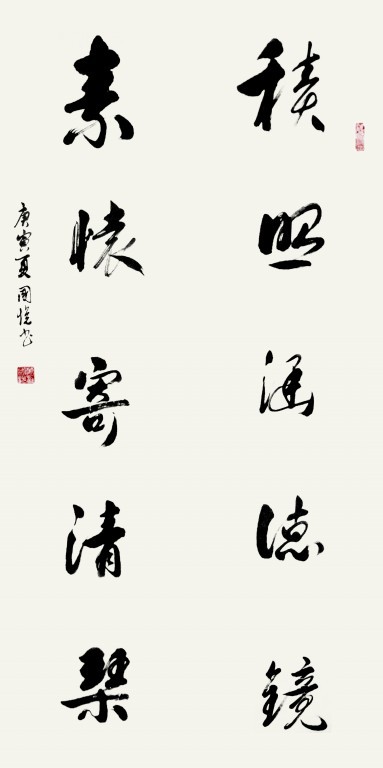 積照涵德鏡
素懷寄清琴
庚寅夏國悦书